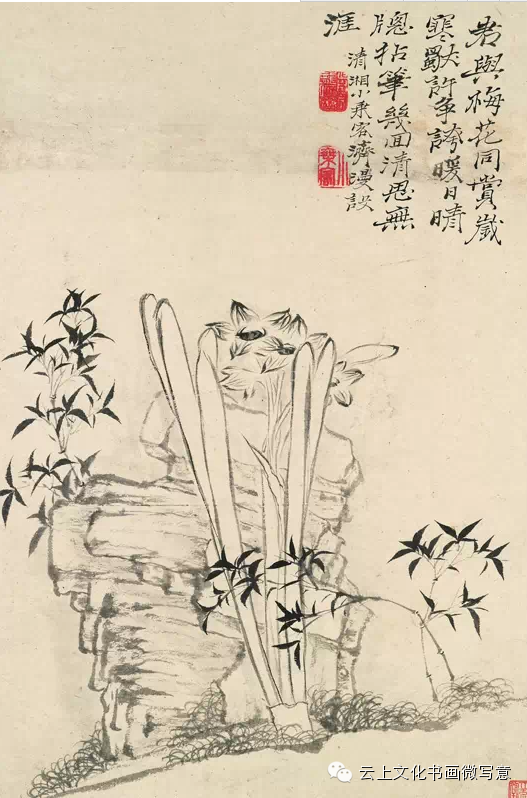 君與梅花同賞歲
寒獨許爭誇暖日晴
牕拈筆幾回清思無
涯
清湘小乘客濟漫設
小乘客
云上文化书画微写意